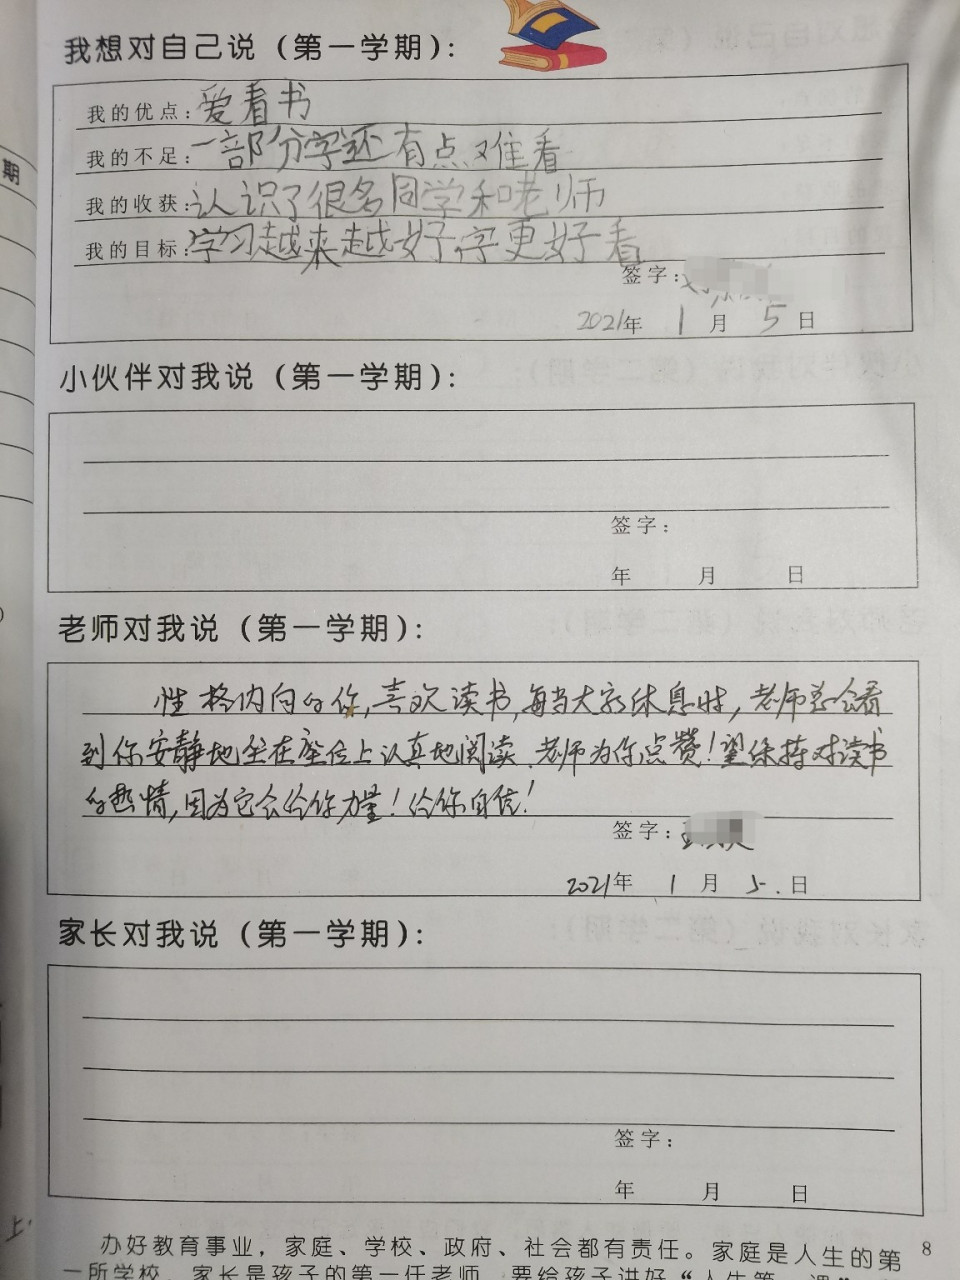 我想对自己说（第一学期）：
我的优点：爱看书
我的不足：一部分字还有点难看
我的收获：认识了很多同学和老师
我的目标：学习越来越好字更好看
签字：
2021年 1 月 5 日
小伙伴对我说（第一学期）：
签字：
年 月 日
老师对我说（第一学期）：
性格内向的你，喜欢读书，每当大家休息时，老师总会看
到你安静地坐在座位上认真地阅读，老师为你点赞！望保持对读书
的热情，因为它会给你力量！给你自信！
签字：
2021年 1 月 5.日
家长对我说（第一学期）：
签字：
年 月 日
办好教育事业，家庭、学校、政府、社会都有责任。家庭是人生的第
一所学校，家长是孩子的第一任老师，要给孩子讲好“人生第一课”
8
期
上